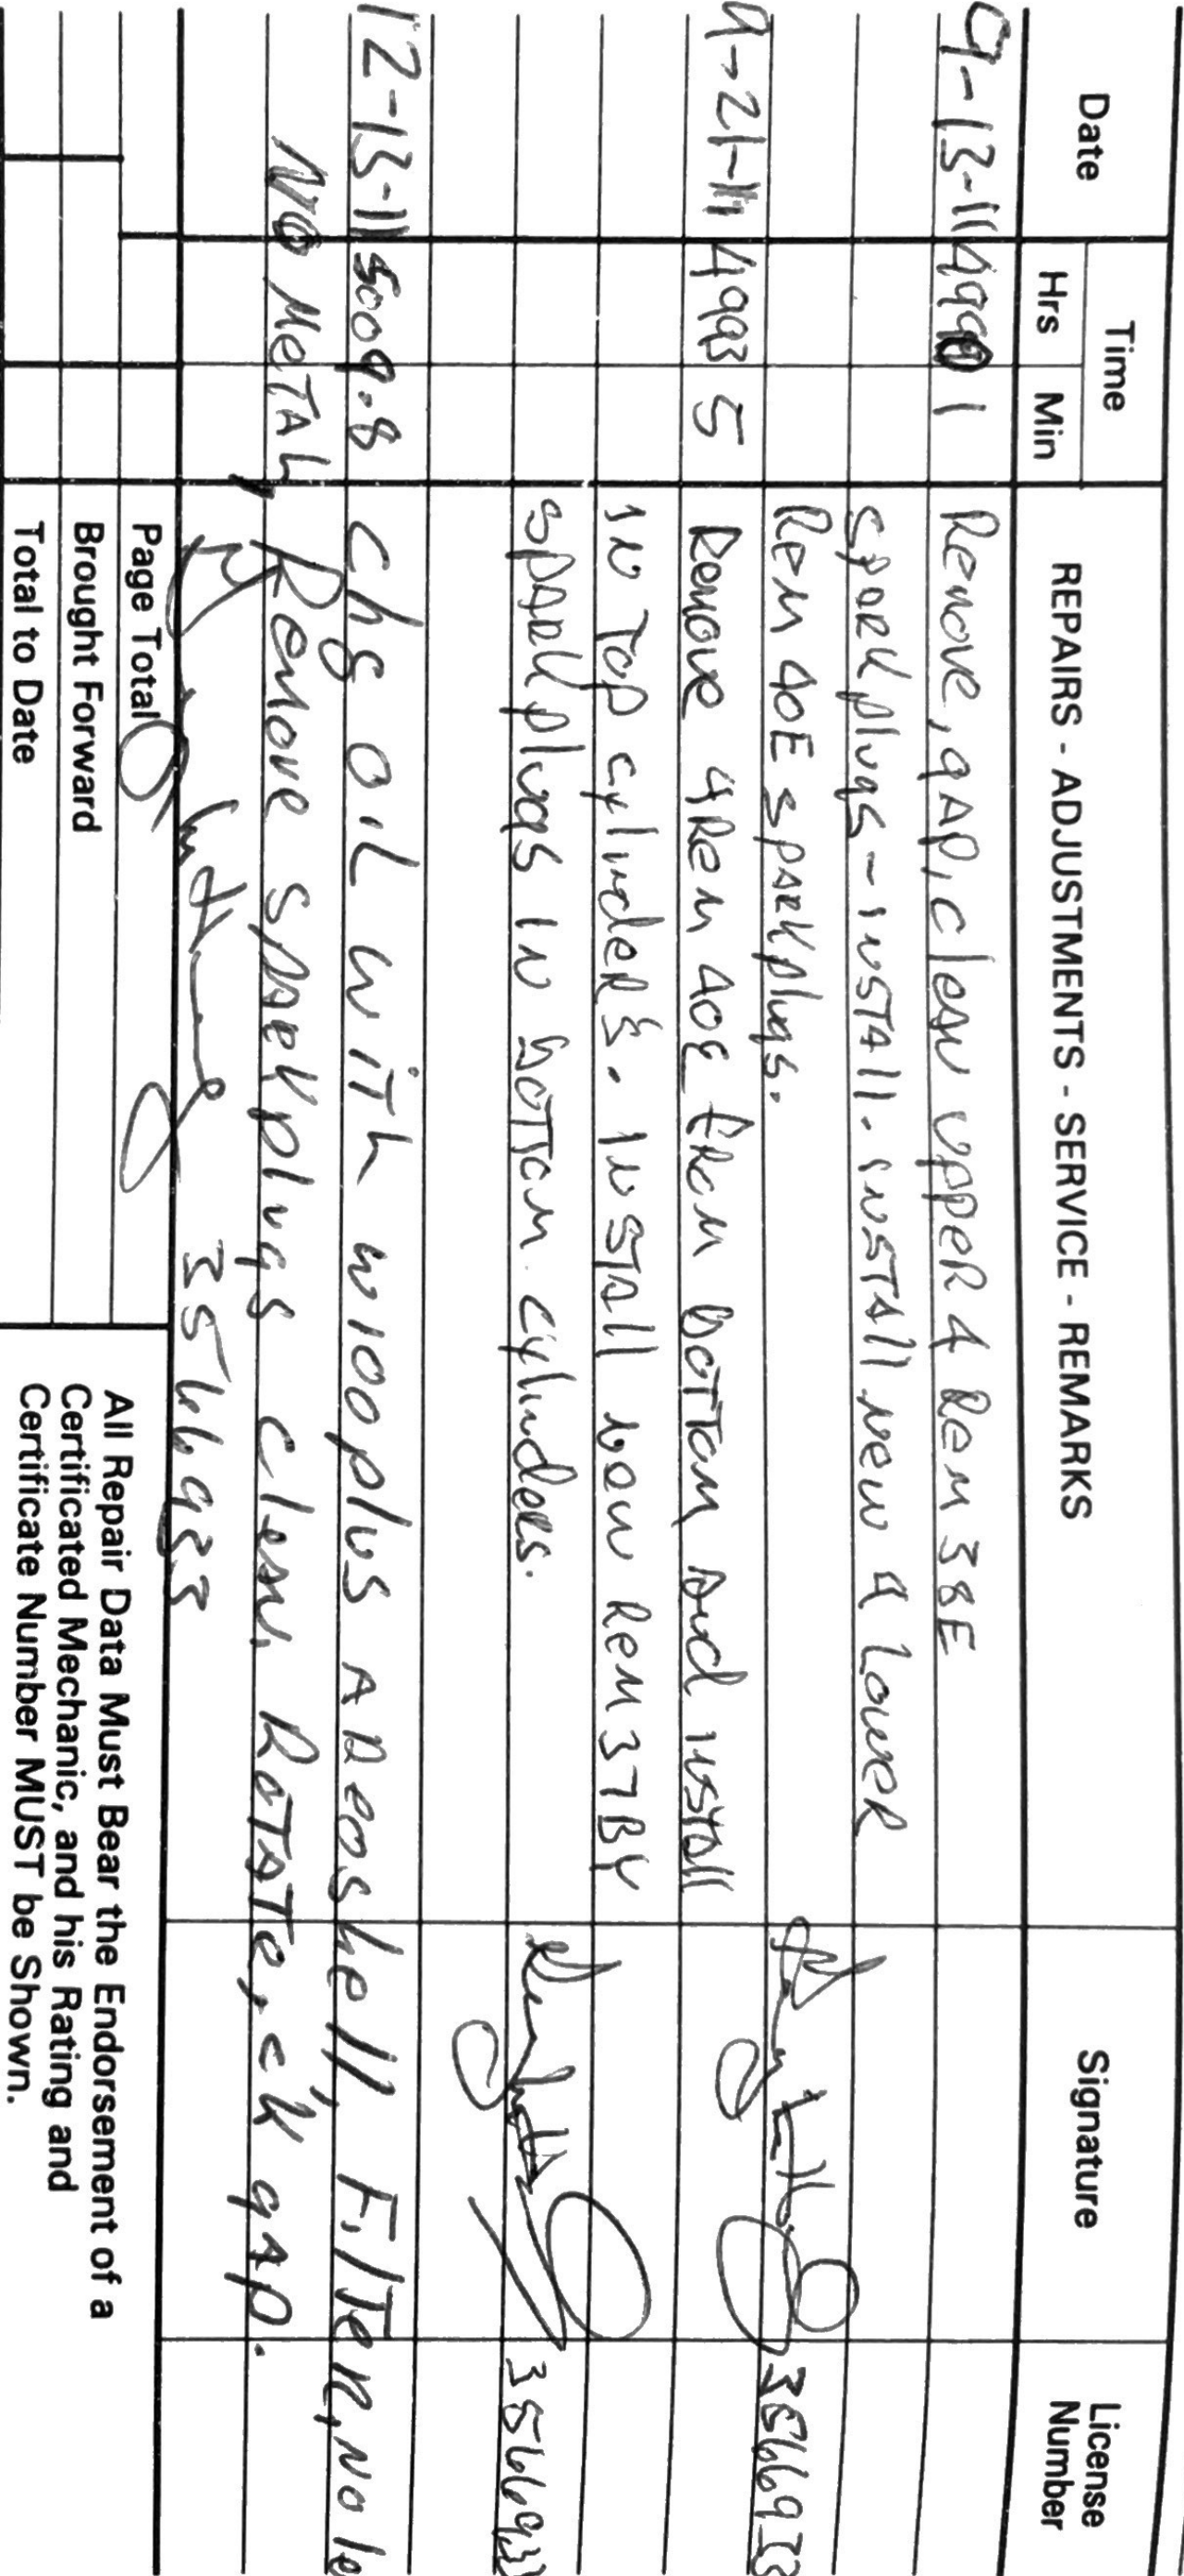 Date Time REPAIRS - ADJUSTMENTS - SERVICE - REMARKS Signature License Number
Hrs Min
9-13-11 4990 1 Remove, gAp, cleAN upper 4 Rem 38E
spark plugs - iNSTAll. iNSTAll New 4 lower
Rem 40E spARk plugs. 3566933
9-21-11 4993 5 Remove 4 Rem 40E from bottom And iNSTAll
iN Top cylinders. INSTAll NEW Rem 37BY
spARk plugs iN bottom cylinders. 3566933
12-13-11 5009.8 chg OiL WiTh W100 plus AReoshell, FilTeR, No le
NO MeTAL, Remove SpARk plugs cleAN, RoTATe, ck gAp.
3566933
Page Total
Brought Forward
Total to Date
All Repair Data Must Bear the Endorsement of a
Certificated Mechanic, and his Rating and
Certificate Number MUST be Shown.